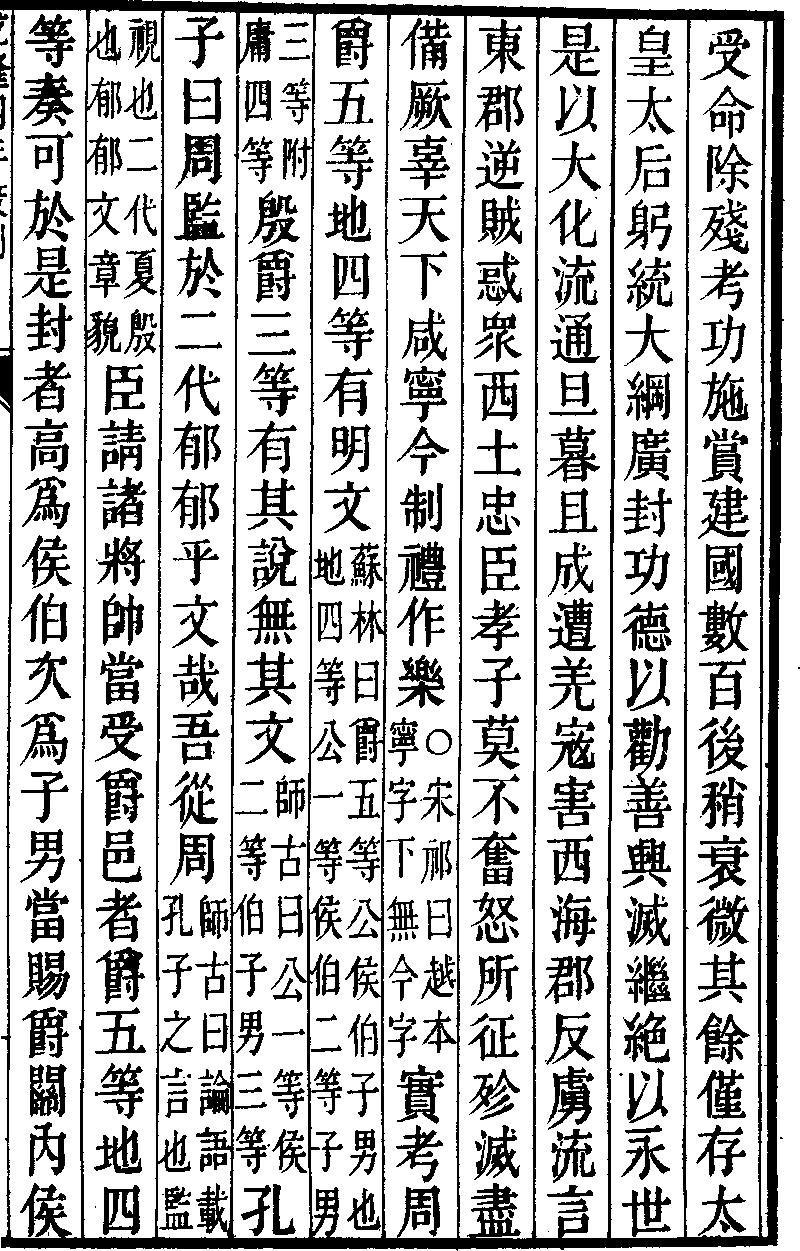 受命除殘考功施賞建國數百後稍衰微其餘僅存太
皇太后躬統大綱廣封功德以勸善興滅繼絶以永世
是以大化流通旦暮且成遭羌寇害西海郡反虜流言
東郡逆賊惑眾西土忠臣孝子莫不奮怒所征殄滅盡
備厥辜天下咸寧今制禮作樂○宋祁曰越本寧字下無今字實考周
爵五等地四等有明文蘇林曰爵五等公侯伯子男也地四等公一等侯伯二等子男
三等附庸四等殷爵三等有其說無其文師古曰公一等侯二等伯子男三等孔
子曰周監於二代郁郁乎文哉吾從周師古曰論語載孔子之言也監
視也二代夏殷也郁郁文章貌臣請諸將帥當受爵邑者爵五等地四
等奏可於是封者高爲侯伯次爲子男當賜爵關內侯